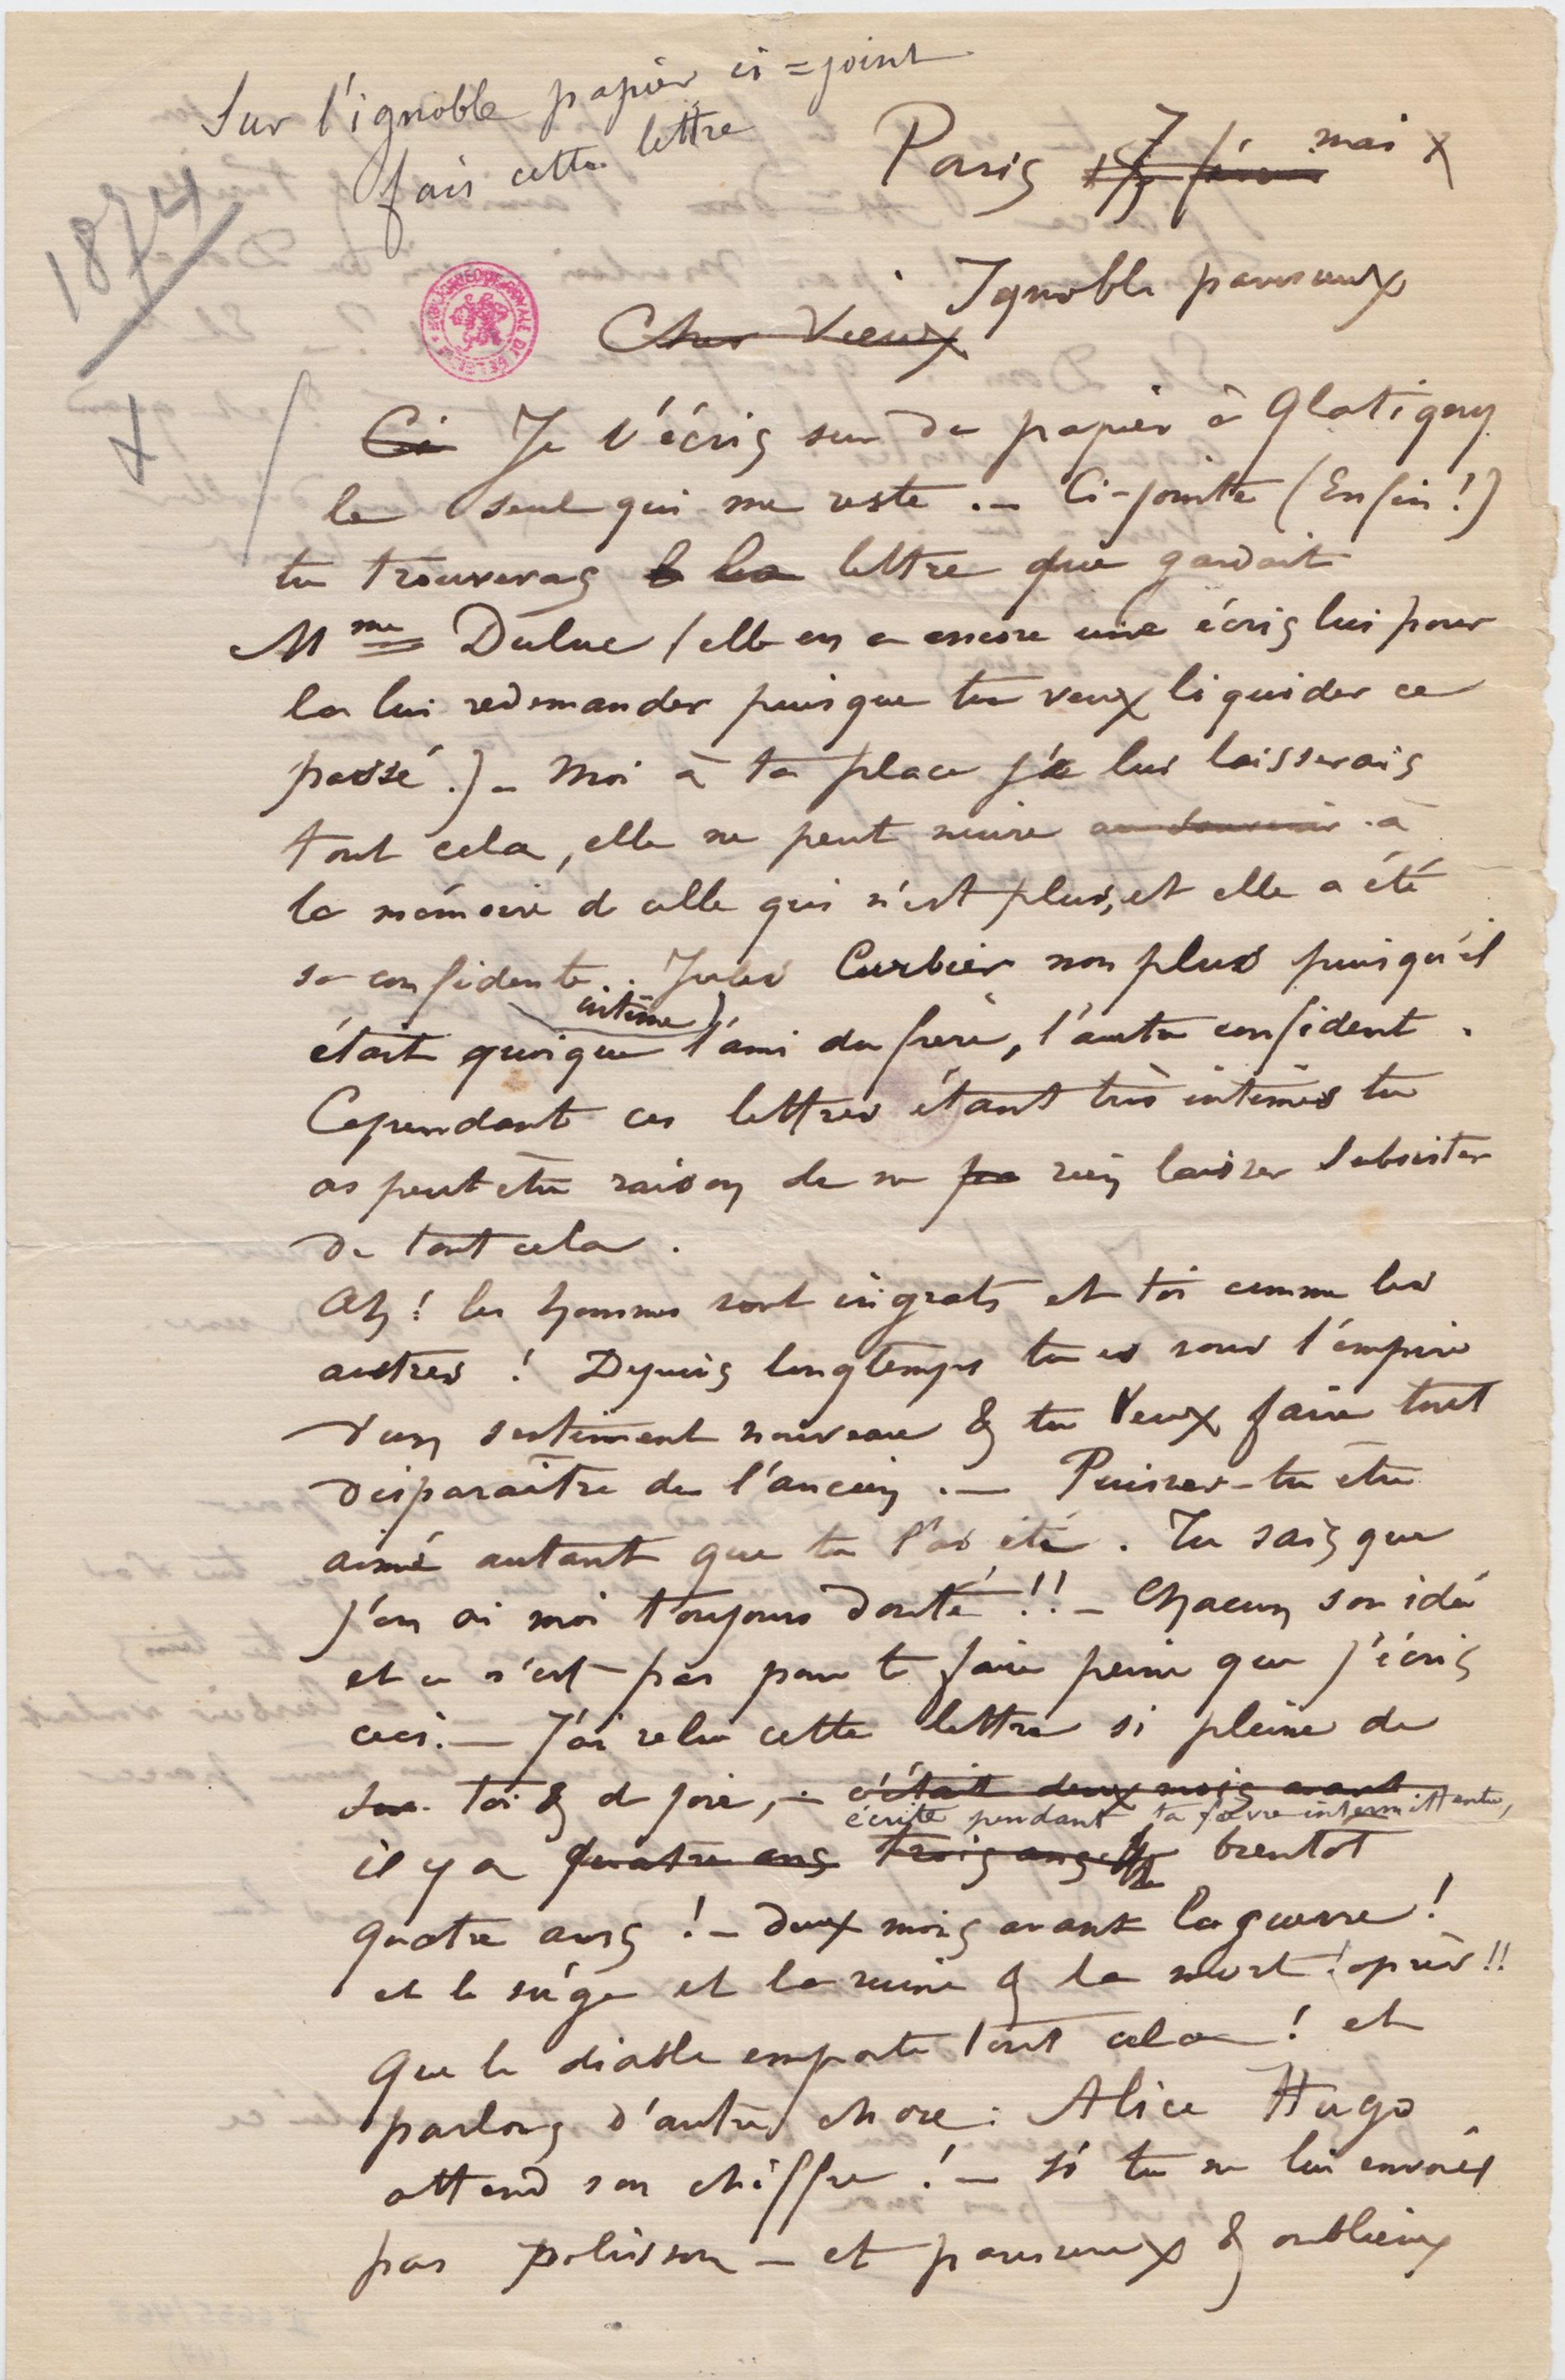 Sur l'ignoble papier ci=joint
fais cette lettre
1874
Paris 7 mai
Ignoble paresseux
Cher Vieux
Ci Je t'écris sur du papier à Glatigny
le seul qui me reste .– Ci-jointe (Enfin !)
tu trouveras la lettre que gardait
Mme Duluc (elle en a encore une écris lui pour
la lui redemander puisque tu veux liquider ce
passé.) – Moi à ta place je lui laisserais
tout cela, elle ne peut nuire au souvenir à
la mémoire de celle qui n'est plus, et elle a été
sa confidente. Jules Curbier non plus puisqu'il
était quoique intime l'ami du frère, l'autre confident.
Cependant ces lettres étant très intimes tu
as peut être raison de ne pa rien laisser subsister
de tout cela.
Ah ! les hommes sont ingrats et toi comme les
autres ! Depuis longtemps tu es sous l'empire
d'un sentiment nouveau & tu veux faire tout
disparaître de l'ancien .— Puisses-tu être
aimé autant que tu l'as été. Tu sais que
j'en ai moi toujours douté !! – Chacun son idée
et ce n'est pas pour te faire peine que j'écris
ceci. — J'ai relu cette lettre si pleine de
toi & de joie, – c'était deux mois avant
écrite pendant ta fièvre intermittente,
il y a quatre ans trois ans bientôt
quatre ans ! – deux mois avant la guerre !
et le siége et la ruine & la mort ! après !!
Que le diable emporte tout cela ! et
parlons d'autre chose : Alice Hugo
attend son chiffre ! — Si tu ne lui envoies
pas polisson – et paresseux & oublieux